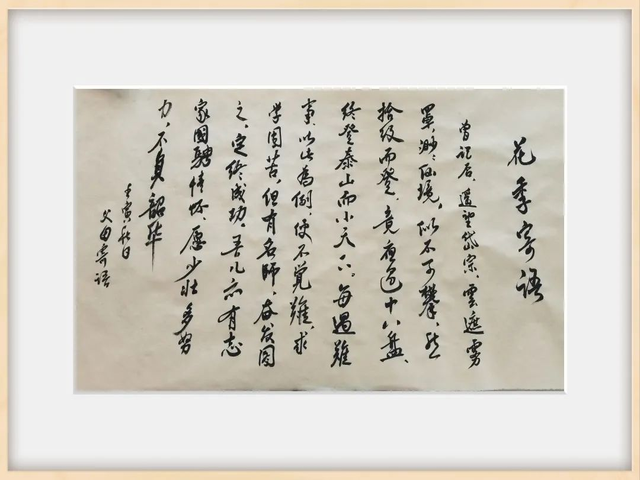 花季寄语
曾记否，遥望岱宗，云遮雾
罩，渺渺仙境，似不可攀，然
拾级而登，竟夜过十八盘，
终登泰山而小天下。每遇难
事，以此为例，便不觉难。求
学固苦，但有名师，奋发图
之，定终成功。吾儿亦有志
家国骋情怀，愿少壮多努
力，不负韶华
壬寅秋日
父母寄语